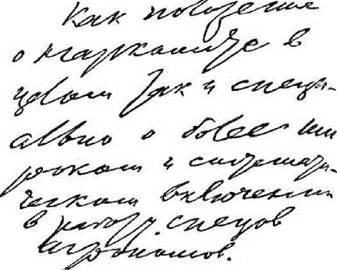 Как положение
о Наркомторге в
целом так и специ-
ально о более ши
роком и система-
ческом включении
в работу спецов
агрономов.